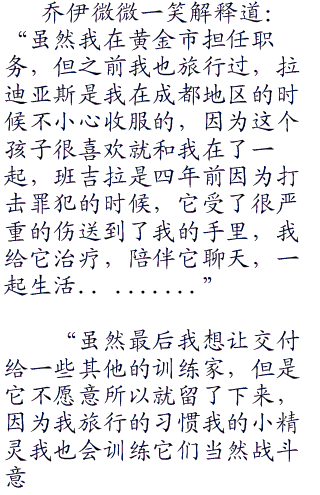 乔伊微微一笑解释道：
“虽然我在黄金市担任职
务，但之前我也旅行过，拉
迪亚斯是我在成都地区的时
候不小心收服的，因为这个
孩子很喜欢就和我在了一
起，班吉拉是四年前因为打
击罪犯的时候，它受了很严
重的伤送到了我的手里，我
给它治疗，陪伴它聊天，一
起生活．．．．．．．．．”
“虽然最后我想让交付
给一些其他的训练家，但是
它不愿意所以就留了下来，
因为我旅行的习惯我的小精
灵我也会训练它们当然战斗
意